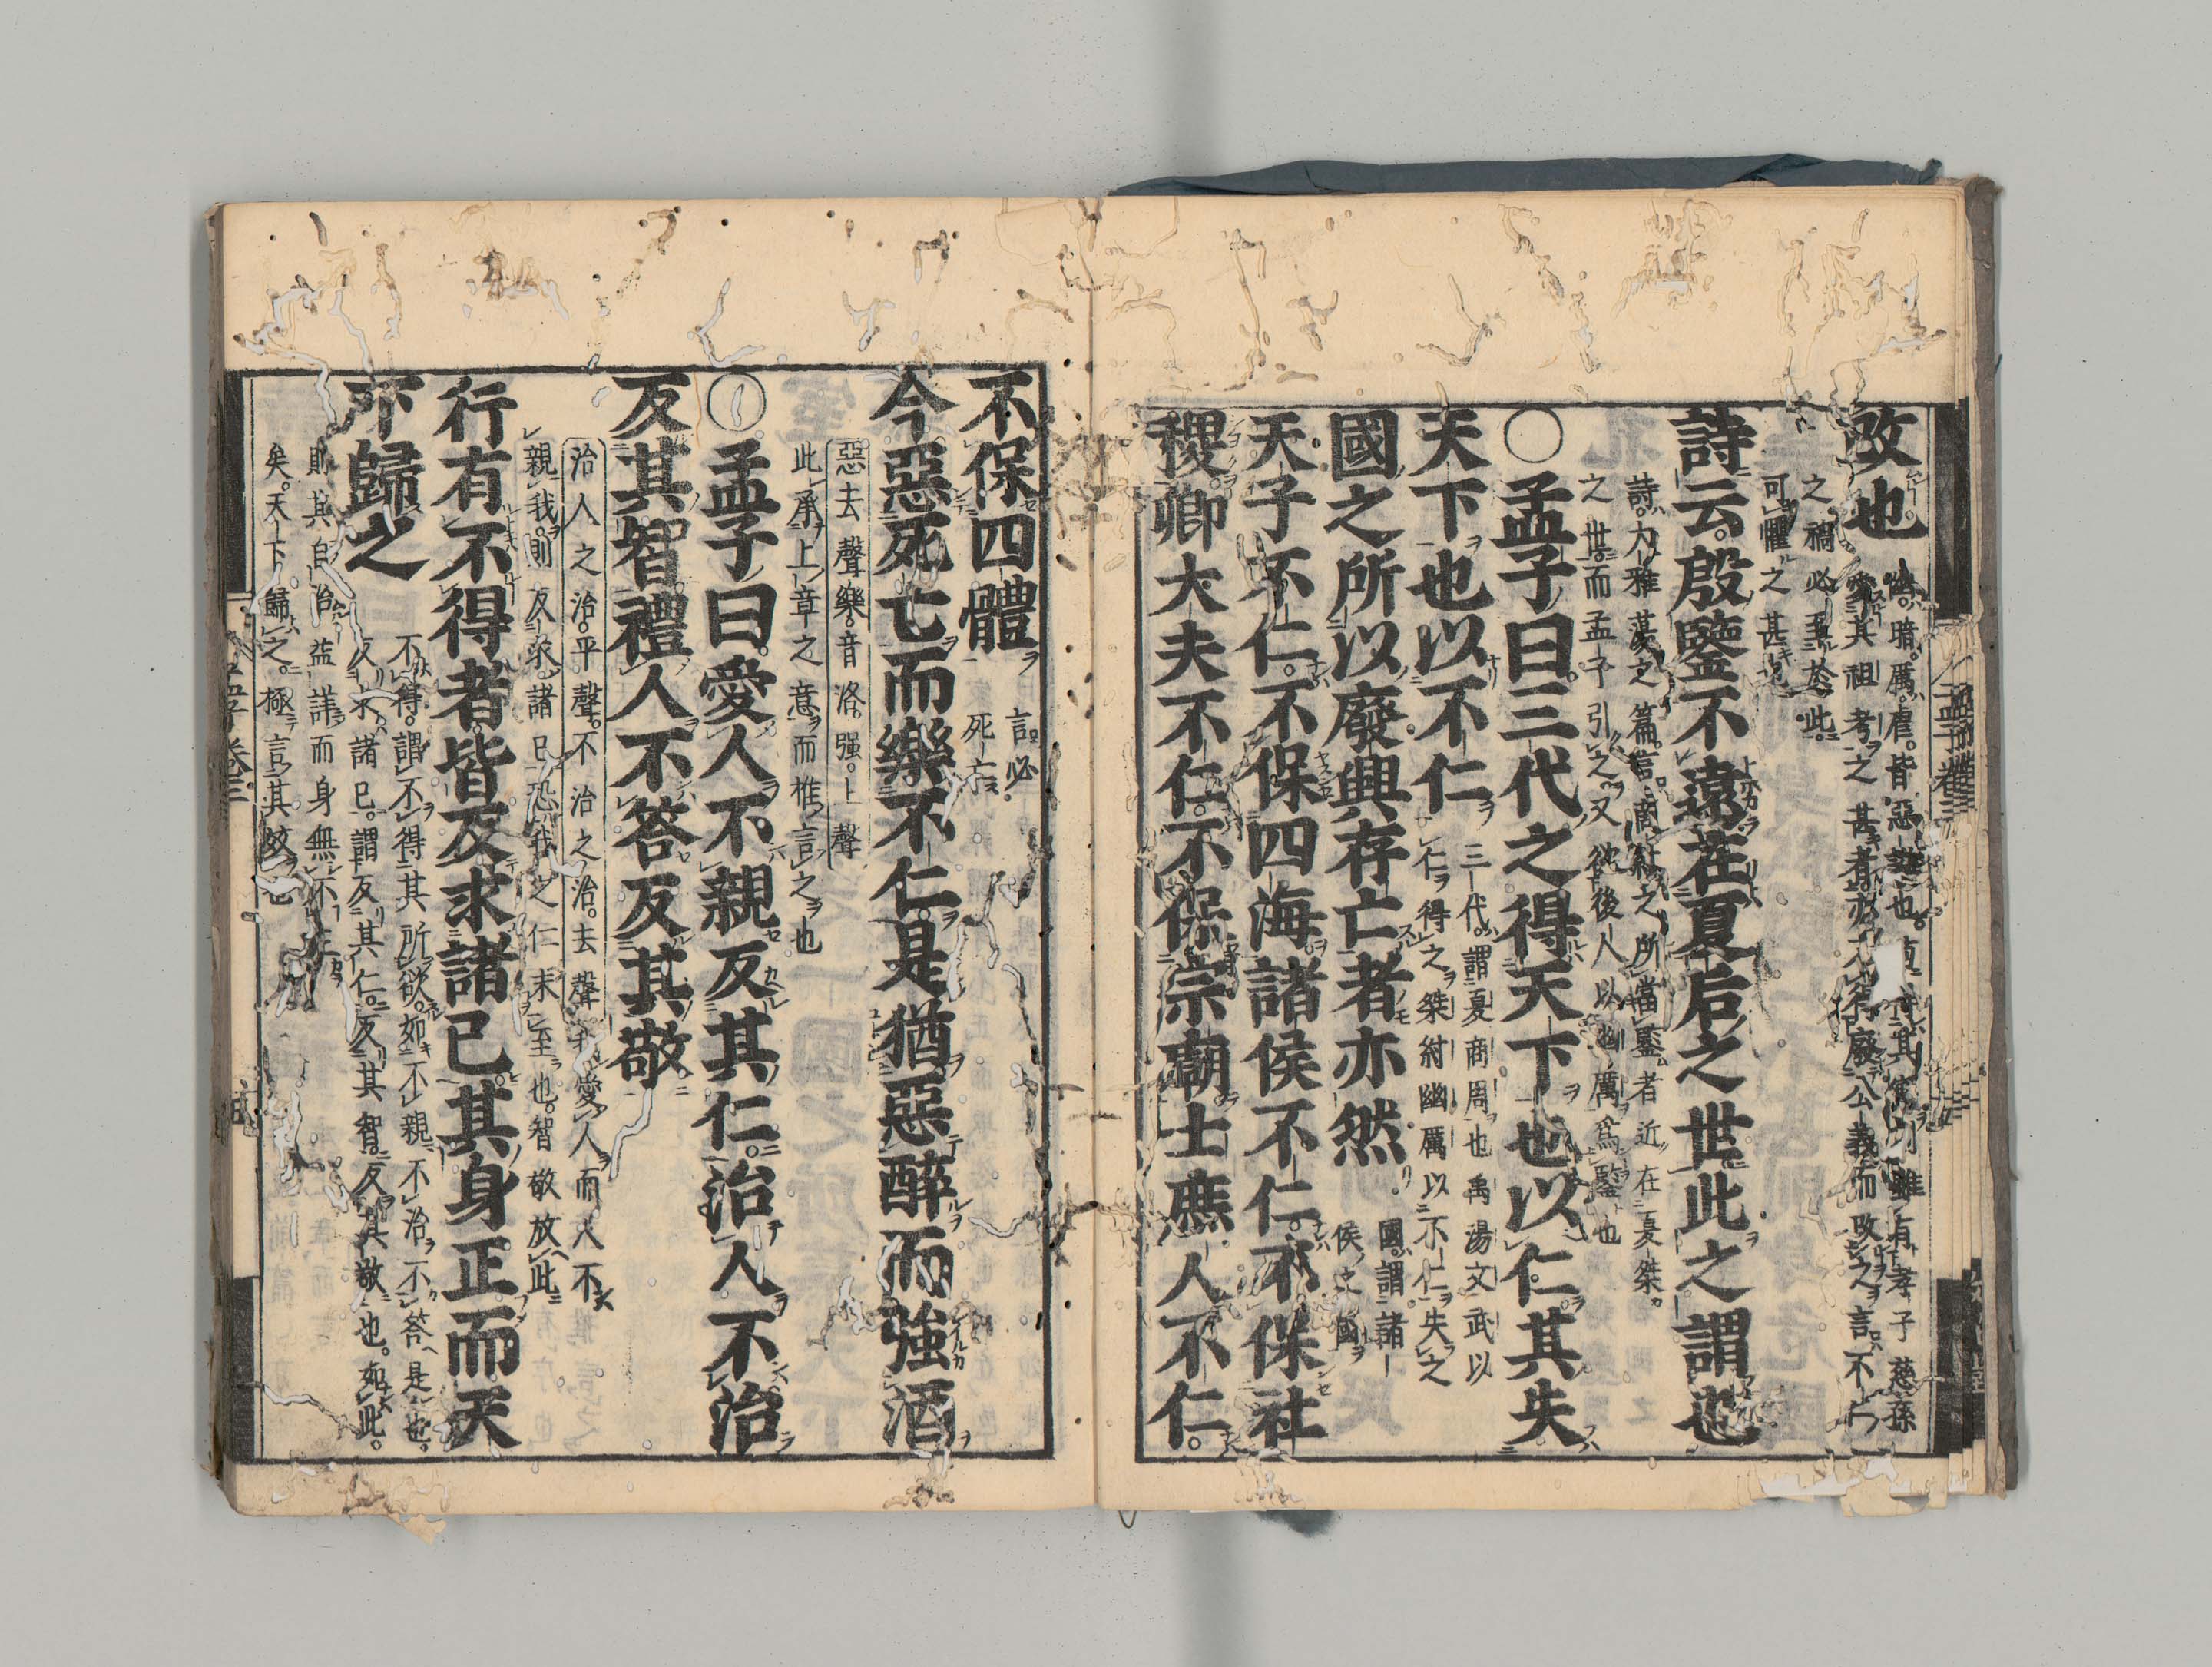 改也
幽。暗。厲。虐。皆惡謚也。其雖有孝子慈孫
愛其祖考之甚者。亦不得廢公義而改之。言不仁
之禍必至於此。
可懼之甚也
詩云。殷鑒不遠在夏后之世此之謂也
詩。大雅蕩之篇。言。商紂之所當鑒者近在夏桀。
之世。而孟子引之。又欲後人以幽厲爲鑒也
○孟子曰。三代之得天下也以仁。其失
天下也以不仁
三代。謂夏商周也禹湯文武以
仁得之桀紂幽厲以不仁失之
國之所以廢興存亡者亦然
國。謂諸
侯之國
天子不仁。不保四海。諸侯不仁。不保社
稷。卿大夫不仁。不保宗廟。士庶人不仁。
不保四體
言必
死亡
今惡死亡而樂不仁。是猶惡醉而強酒
惡去聲樂。音洛。强。上聲
此承上章之意而推言之也
○孟子曰。愛人不親反其仁。治人不治
反其智。禮人不答反其敬
治人之治。平聲。不治之治。去聲我愛人而人不
親我。則反求諸已恐我之仁未至也。智敬放此
行有不得者。皆反求諸已。其身正而天
下歸之
不得。謂不得其所欲。如不親不治不答。是也。
反求諸已。謂反其仁。反其智。反其敬也。如此。
則其自治益詳而身無不正
矣。天下歸之。極言其效也
孟子卷三